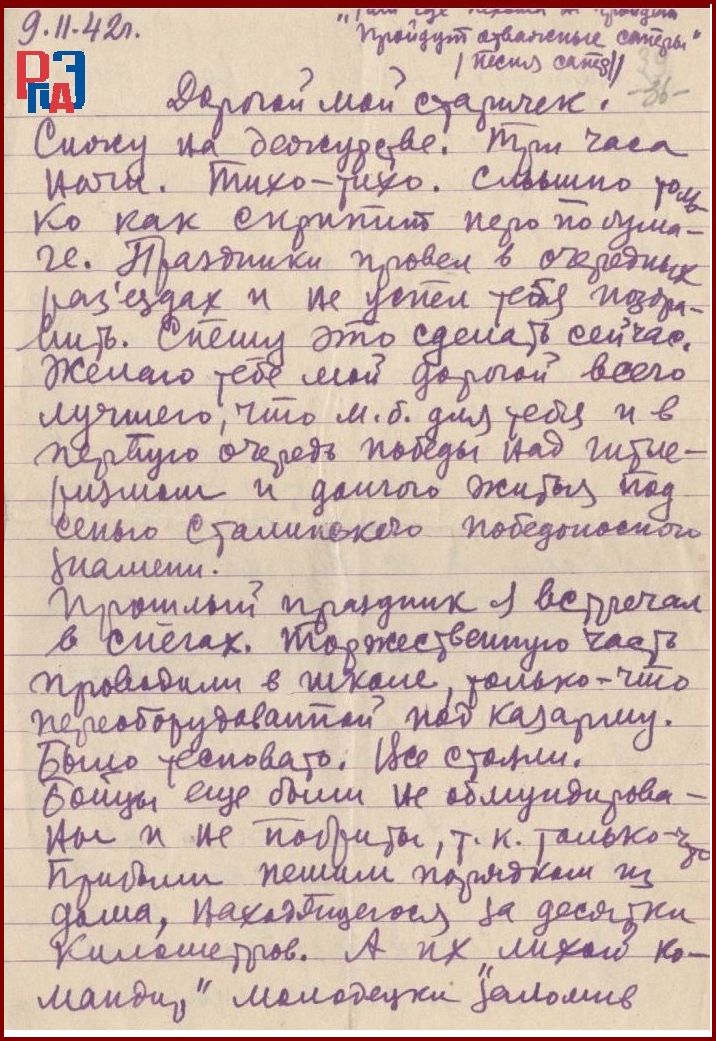 9.11.42г.
"Там где пехота не пройдет
Пройдут отважные саперы"
/песня сапер/
РГАЭ
36
Дорогой мой старичек.
Сижу на дежурстве. Три часа
ночи. Тихо-тихо. Слышно толь-
ко как скрипит перо по бума-
ге. Праздники провел в очередных
раз'ездах и не успел тебя поздра-
вить. Спешу это сделать сейчас.
Желаю тебе мой дорогой всего
лучшего, что м.б. для тебя и в
первую очередь победы над гитле-
ризмом и долгого житья под
сенью Сталинского победоносного
знамени.
Прошлый праздник я встречал
в снегах. Торжественную часть
проводили в школе, только-что
переоборудованной под казарму.
Было тесновато. Все стояли.
Бойцы еще были не обмундирова-
ны и не побриты, т.к. только-что
прибыли пешим порядком из
дома, находящегося за десятки
километров. А их лихой ко-
мандир, "молодецки" заломив